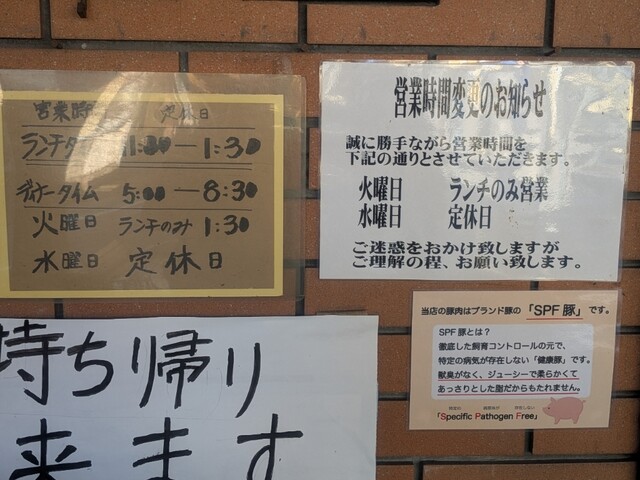 営業時 定休日
ランチタ 11:00—1:30
ディナータイム 5:00—8:30
火曜日 ランチのみ 1:30
水曜日 定休日
営業時間変更のお知らせ
誠に勝手ながら営業時間を
下記の通りとさせていただきます。
火曜日 ランチのみ営業
水曜日 定休日
ご迷惑をおかけ致しますが
ご理解の程、お願い致します。
当店の豚肉はブランド豚の「SPF豚」です。
SPF豚とは?
徹底した飼育コントロールの元で、
特定の病気が存在しない「健康豚」です。
獣臭がなく、ジューシーで柔らかくて
あっさりとした脂だからもたれません。
「Specific Pathogen Free」
持ち帰り
来ます